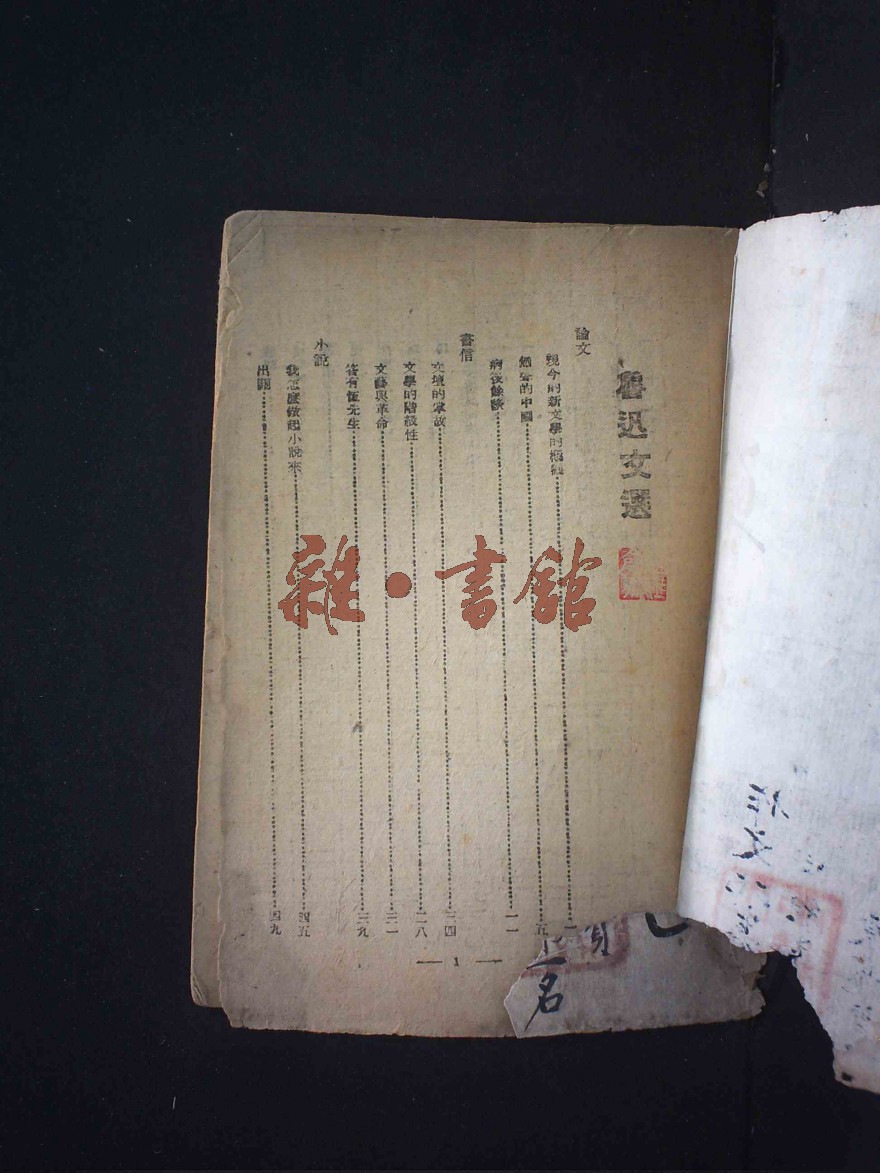 魯迅文選
論文
現今的新文學的概觀 一
無聲的中國 五
病後餘談 一一
書信
文壇的掌故 二四
文學的階級性 二八
文藝與革命 三一
答有恆先生 三九
小說
我怎麼做起小說來 四五
出關 四九
— 1 —
雜·書館
一名